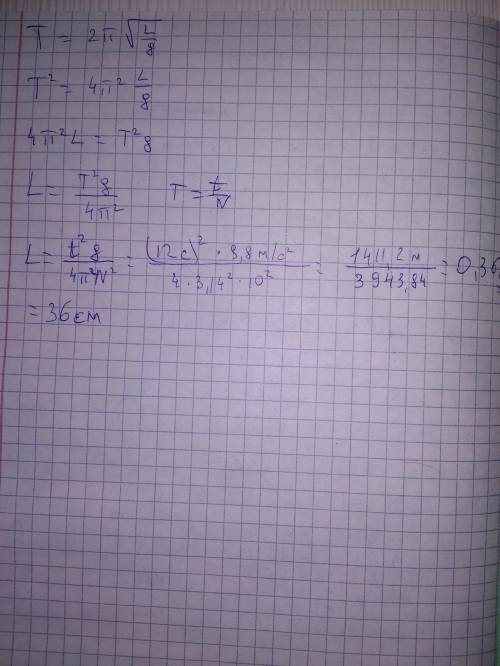 T = 2π √(L/g)
T² = 4π² L/g
4π²L = T²g
L = T²g/4π² T = t/N
L = t²g/4π²N² = (12 с)² · 9,8 м/с² / 4 · 3,14² · 10² = 1411,2 м / 3943,84 = 0,36
= 36 см